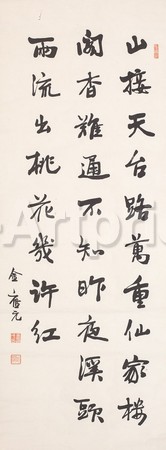 山接天台路萬重仙家樓
閣杳難通不知昨夜溪頭
雨流出桃花幾許紅
金應元